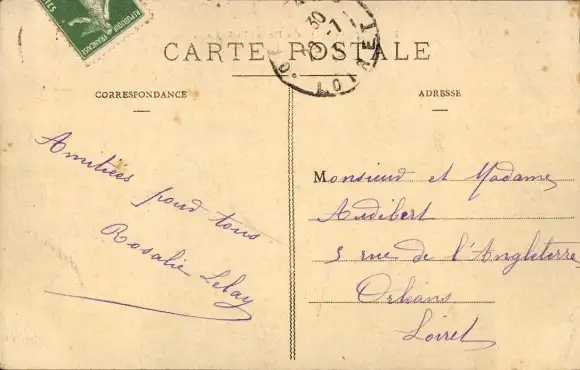 POSTES
REPUBLIQUE FRANÇAISE
30
LOIRET
CARTE POSTALE
CORRESPONDANCE
ADRESSE
Amitiées
pour tous
Rosalie Lelay
Monsieur et Madame
Audibert
5 rue de l'Angleterre
Orléans
Loiret